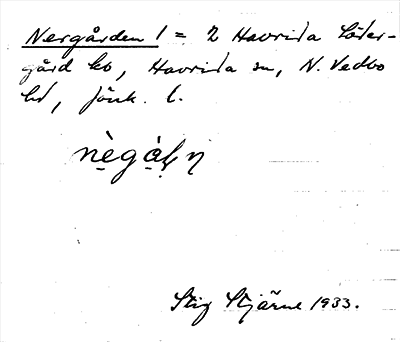 Nergården 1 = 2 Havrida Söder-
gård ho, Havrida sn, N. Vedbo
hd, Jönk. l.
Stig Stjärne 1933.